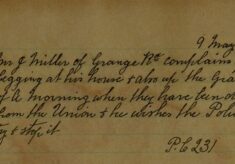 9 May
Mr J Miller of Grange Rd complains
begging at his house & also up the Gra
of A morning when they have
from the Union & he wishes the Poli
& stop it
P.C 231